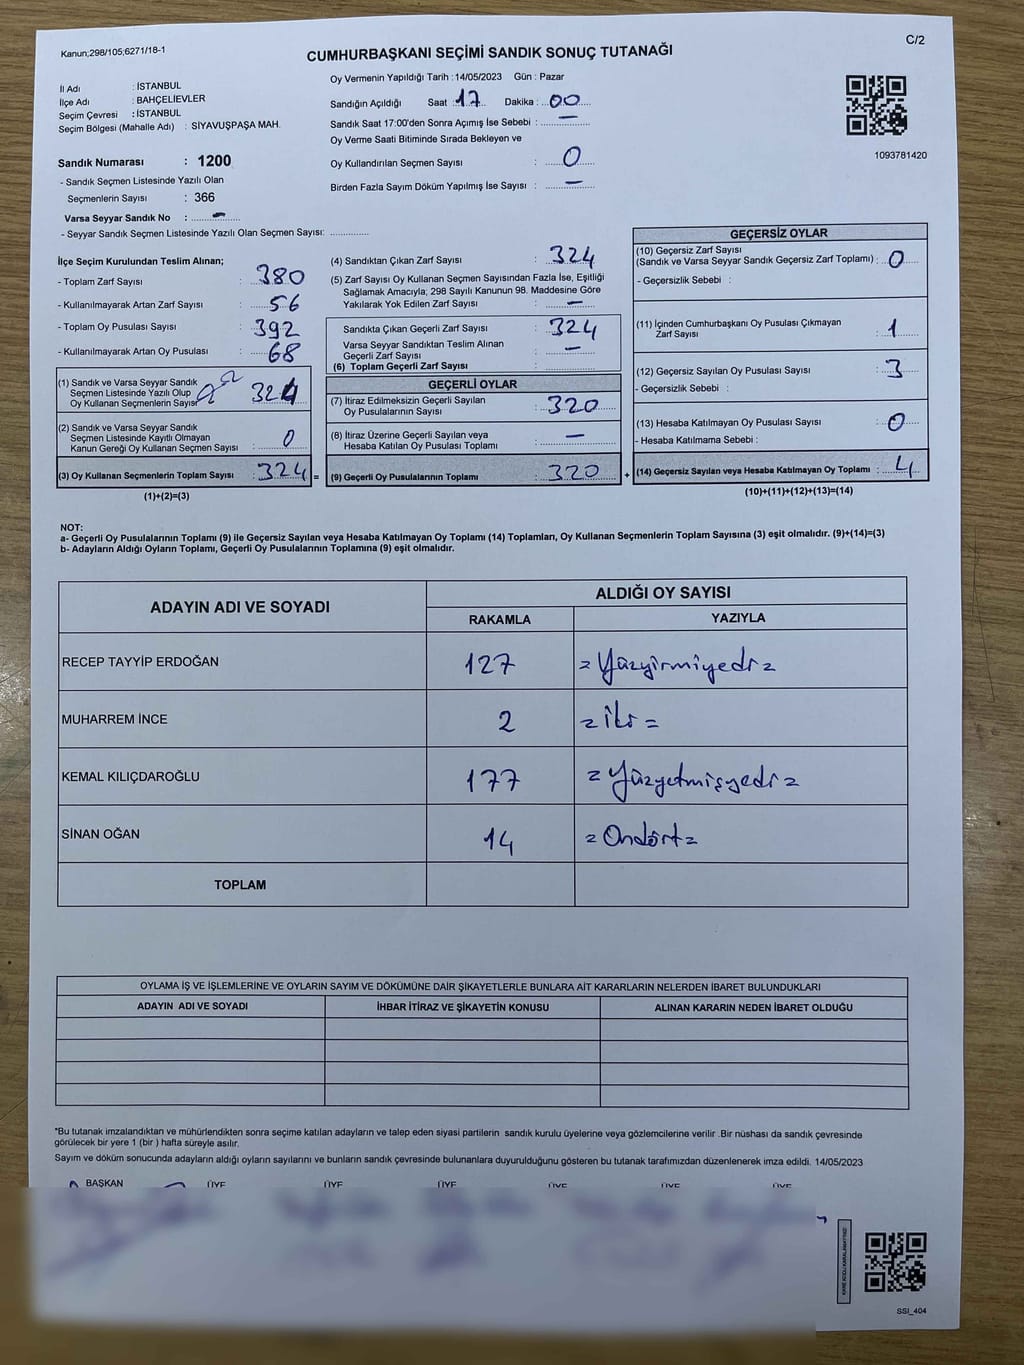 Kanun;298/105;6271/18-1
C/2
CUMHURBAŞKANI SEÇİMİ SANDIK SONUÇ TUTANAĞI
İl Adı : İSTANBUL
İlçe Adı : BAHÇELİEVLER
Seçim Çevresi : İSTANBUL
Seçim Bölgesi (Mahalle Adı) : SİYAVUŞPAŞA MAH.
Oy Vermenin Yapıldığı Tarih : 14/05/2023 Gün : Pazar
Sandığın Açıldığı Saat : 17 Dakika : 00
Sandık Saat 17:00'den Sonra Açımış İse Sebebi : —
Oy Verme Saati Bitiminde Sırada Bekleyen ve
Oy Kullandırılan Seçmen Sayısı : 0
Birden Fazla Sayım Döküm Yapılmış İse Sayısı : —
1093781420
Sandık Numarası : 1200
- Sandık Seçmen Listesinde Yazılı Olan
Seçmenlerin Sayısı : 366
Varsa Seyyar Sandık No : —
- Seyyar Sandık Seçmen Listesinde Yazılı Olan Seçmen Sayısı: ..............
İlçe Seçim Kurulundan Teslim Alınan;
- Toplam Zarf Sayısı : 380
- Kullanılmayarak Artan Zarf Sayısı : 56
- Toplam Oy Pusulası Sayısı : 392
- Kullanılmayarak Artan Oy Pusulası : 68
(1) Sandık ve Varsa Seyyar Sandık
Seçmen Listesinde Yazılı Olup
Oy Kullanan Seçmenlerin Sayısı 324
(2) Sandık ve Varsa Seyyar Sandık
Seçmen Listesinde Kayıtlı Olmayan
Kanun Gereği Oy Kullanan Seçmen Sayısı : 0
(3) Oy Kullanan Seçmenlerin Toplam Sayısı : 324 =
(1)+(2)=(3)
(4) Sandıktan Çıkan Zarf Sayısı : 324
(5) Zarf Sayısı Oy Kullanan Seçmen Sayısından Fazla İse, Eşitliği
Sağlamak Amacıyla; 298 Sayılı Kanunun 98. Maddesine Göre
Yakılarak Yok Edilen Zarf Sayısı : —
Sandıkta Çıkan Geçerli Zarf Sayısı : 324
Varsa Seyyar Sandıktan Teslim Alınan
Geçerli Zarf Sayısı : —
(6) Toplam Geçerli Zarf Sayısı :
GEÇERLİ OYLAR
(7) İtiraz Edilmeksizin Geçerli Sayılan
Oy Pusulalarının Sayısı : 320
(8) İtiraz Üzerine Geçerli Sayılan veya
Hesaba Katılan Oy Pusulası Toplamı : —
(9) Geçerli Oy Pusulalarının Toplamı : 320 +
GEÇERSİZ OYLAR
(10) Geçersiz Zarf Sayısı
(Sandık ve Varsa Seyyar Sandık Geçersiz Zarf Toplamı) : 0
- Geçersizlik Sebebi :
(11) İçinden Cumhurbaşkanı Oy Pusulası Çıkmayan
Zarf Sayısı : 1
(12) Geçersiz Sayılan Oy Pusulası Sayısı : 3
- Geçersizlik Sebebi :
(13) Hesaba Katılmayan Oy Pusulası Sayısı : 0
- Hesaba Katılmama Sebebi :
(14) Geçersiz Sayılan veya Hesaba Katılmayan Oy Toplamı : 4
(10)+(11)+(12)+(13)=(14)
NOT:
a- Geçerli Oy Pusulalarının Toplamı (9) ile Geçersiz Sayılan veya Hesaba Katılmayan Oy Toplamı (14) Toplamları, Oy Kullanan Seçmenlerin Toplam Sayısına (3) eşit olmalıdır. (9)+(14)=(3)
b- Adayların Aldığı Oyların Toplamı, Geçerli Oy Pusulalarının Toplamına (9) eşit olmalıdır.
ADAYIN ADI VE SOYADI ALDIĞI OY SAYISI
RAKAMLA YAZIYLA
RECEP TAYYİP ERDOĞAN 127 = Yüzyirmiyedi =
MUHARREM İNCE 2 = iki =
KEMAL KILIÇDAROĞLU 177 = Yüzyetmişyedi =
SİNAN OĞAN 14 = Ondört =
TOPLAM
OYLAMA İŞ VE İŞLEMLERİNE VE OYLARIN SAYIM VE DÖKÜMÜNE DAİR ŞİKAYETLERLE BUNLARA AİT KARARLARIN NELERDEN İBARET BULUNDUKLARI
ADAYIN ADI VE SOYADI İHBAR İTİRAZ VE ŞİKAYETİN KONUSU ALINAN KARARIN NEDEN İBARET OLDUĞU
*Bu tutanak imzalandıktan ve mühürlendikten sonra seçime katılan adayların ve talep eden siyasi partilerin sandık kurulu üyelerine veya gözlemcilerine verilir .Bir nüshası da sandık çevresinde
görülecek bir yere 1 (bir ) hafta süreyle asılır.
Sayım ve döküm sonucunda adayların aldığı oyların sayılarını ve bunların sandık çevresinde bulunanlara duyurulduğunu gösteren bu tutanak tarafımızdan düzenlenerek imza edildi. 14/05/2023
BAŞKAN ÜYE ÜYE ÜYE ÜYE ÜYE ÜYE
SSI_404